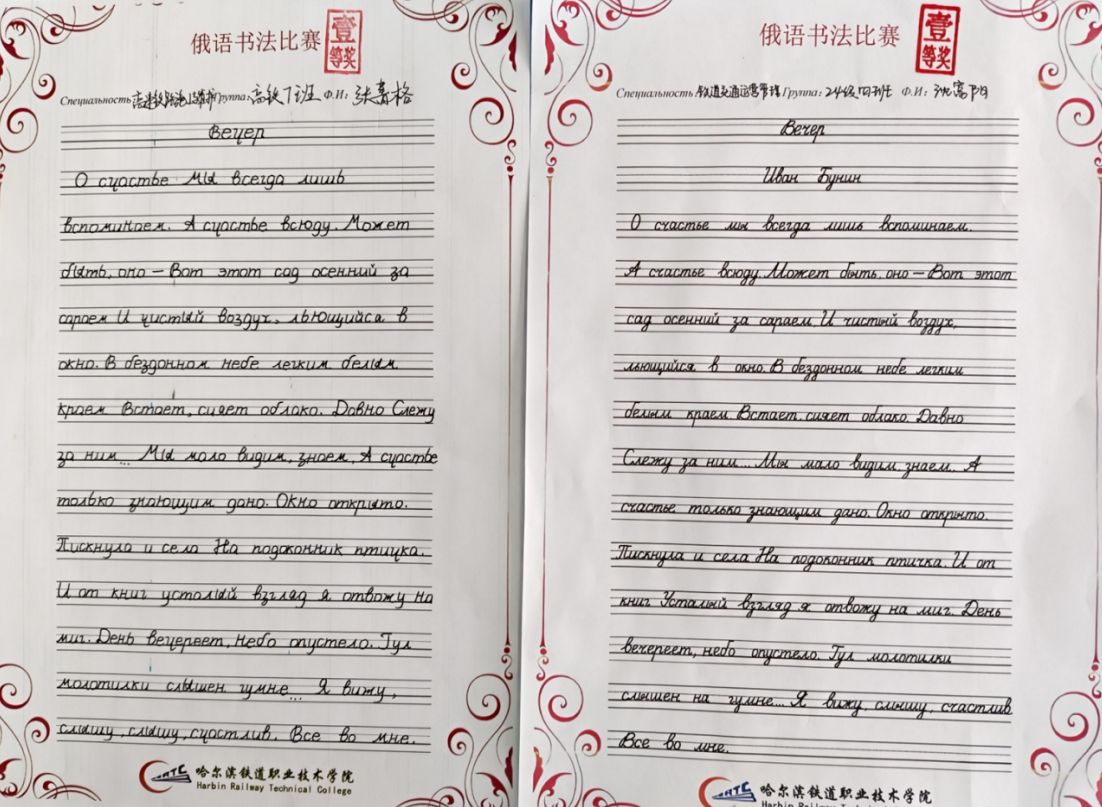 俄语书法比赛
壹等奖
Специальность: Группа: 高铁7班 Ф.И:
Вечер
О счастье мы всегда лишь
вспоминаем. А счастье всюду. Может
быть, оно – Вот этот сад осенний за
сараем И чистый воздух, льющийся в
окно. В бездонном небе легким белым
краем Встает, сияет облако. Давно Слежу
за ним... Мы мало видим, знаем, А счастье
только знающим дано. Окно открыто.
Пискнула и села На подоконник птичка.
И от книг усталый взгляд я отвожу на
миг. День вечереет, Небо опустело. Гул
молотилки слышен гумне... Я вижу,
слышу, слышу, счастлив. Все во мне.
哈尔滨铁道职业技术学院
Harbin Railway Technical College
俄语书法比赛
壹等奖
Специальность: 铁道交通运营管理 Группа: 24级四班 Ф.И:
Вечер
Иван Бунин
О счастье мы всегда лишь вспоминаем.
А счастье всюду. Может быть, оно – Вот этот
сад осенний за сараем. И чистый воздух,
льющийся в окно. В бездонном небе легким
белым краем. Встает, сияет облако. Давно
Слежу за ним... Мы мало видим, знаем. А
счастье только знающим дано. Окно открыто.
Пискнула и села На подоконник птичка. И от
книг Усталый взгляд я отвожу на миг. День
вечереет, небо опустело. Гул молотилки
слышен на гумне... Я вижу, слышу, счастлив.
Все во мне.
哈尔滨铁道职业技术学院
Harbin Railway Technical College